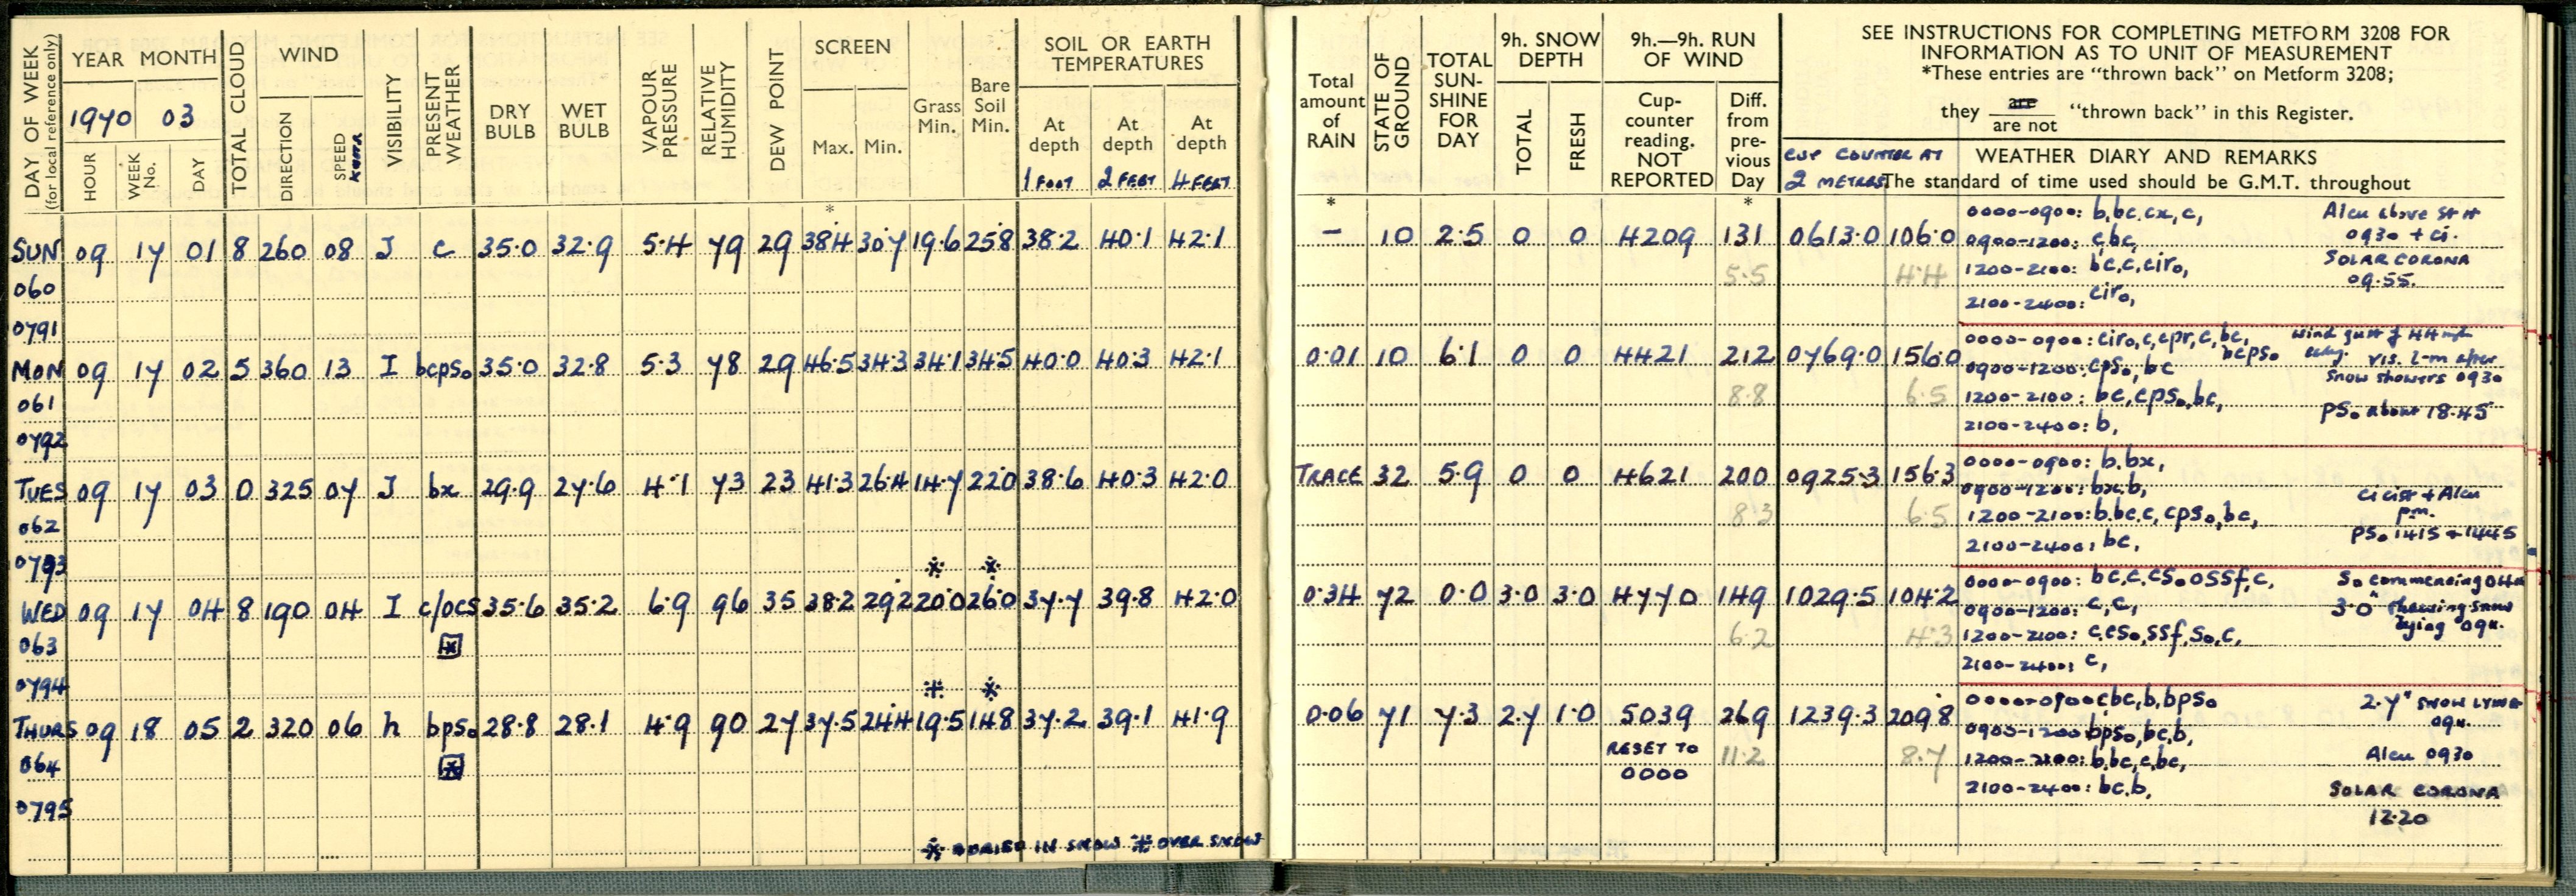 DAY OF WEEK (for local reference only)
YEAR MONTH
1970 03
HOUR
WEEK No.
DAY
TOTAL CLOUD
WIND
DIRECTION
SPEED KNOTS
VISIBILITY
PRESENT WEATHER
DRY BULB
WET BULB
VAPOUR PRESSURE
RELATIVE HUMIDITY
DEW POINT
SCREEN
Max. Min.
*
Grass Min.
Bare Soil Min.
SOIL OR EARTH TEMPERATURES
At depth 1 FOOT
At depth 2 FEET
At depth 4 FEET
Total amount of RAIN
*
STATE OF GROUND
TOTAL SUN-SHINE FOR DAY
9h. SNOW DEPTH
TOTAL
FRESH
9h.—9h. RUN OF WIND
Cup-counter reading. NOT REPORTED
Diff. from pre-vious Day
*
SEE INSTRUCTIONS FOR COMPLETING METFORM 3208 FOR
INFORMATION AS TO UNIT OF MEASUREMENT
*These entries are "thrown back" on Metform 3208;
they are / are not "thrown back" in this Register.
CUP COUNTER AT 2 METRES
WEATHER DIARY AND REMARKS
The standard of time used should be G.M.T. throughout
SUN 09 17 01 8 260 08 J c 35.0 32.9 5.4 79 29 38.4 30.7 19.6 25.8 38.2 40.1 42.1 – 10 2.5 0 0 4209 131 0613.0 106.0
060
5.5 4.4
0000-0900: b,bc,cx,c,
0900-1200: c,bc,
1200-2100: bc,c,cir₀,
2100-2400: cir₀,
Alcu above St H
0930 + ci.
SOLAR CORONA
09.55.
0791
MON 09 17 02 5 360 13 I bcps₀ 35.0 32.8 5.3 78 29 46.5 34.3 34.1 34.5 40.0 40.3 42.1 0.01 10 6.1 0 0 4421 212 0769.0 156.0
061
8.8 6.5
0000-0900: cir₀,c,cpr,c,bc, bcps₀
0900-1200: cps₀, bc
1200-2100: bc,cps₀,bc,
2100-2400: b,
Wind gust of 44 mph
early. vis. L-m after
Snow showers 0930
ps₀ about 18.45
0792
TUES 09 17 03 0 325 07 J bx 29.9 27.6 4.1 73 23 41.3 26.4 14.7 22.0 38.6 40.3 42.0 TRACE 32 5.9 0 0 4621 200 0925.3 156.3
062
8.3 6.5
0000-0900: b.bx,
0900-1200: bx.b,
1200-2100: b.bc.c, cps₀,bc,
2100-2400: bc,
ci cist + Alcu
p.m.
ps₀ 1415 + 1445
0793
WED 09 17 04 8 190 04 I c/ocs 35.6 35.2 6.9 96 35 38.2 29.2 20.0 26.0 37.7 39.8 42.0 0.34 72 0.0 3.0 3.0 4770 149 1029.5 104.2
063
6.2 4.3
0000-0900: bc,c,cs₀ossf,c,
0900-1200: c,c,
1200-2100: c,cs₀,ssf,s₀,c,
2100-2400: c,
3.0" thawing snow
lying 09h.
0794
THURS 09 18 05 2 320 06 h bps₀ 28.8 28.1 4.9 90 27 37.5 24.4 19.5 14.8 37.2 39.1 41.9 0.06 71 7.3 2.7 1.0 5039 269 1239.3 209.8
064
RESET TO
0000
11.2 8.7
0000-0900 cbc,b,bps₀
0900-1200 bps₀,bc,b,
1200-2100: b,bc,c,bc,
2100-2400: bc,b,
2.7" SNOW LYING
09h.
Alcu 0930
SOLAR CORONA
12.20
0795
※ BURIED IN SNOW ⁜ OVER SNOW